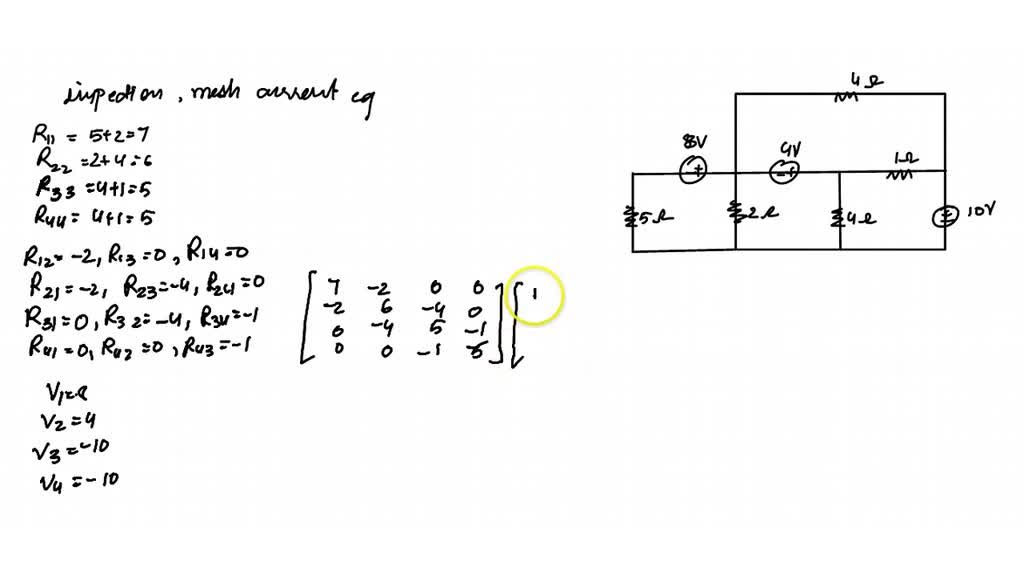 inspection, mesh current eq
R11 = 5+2=7
R22 =2+4=6
R33 =4+1=5
R44 = 4+1=5
R12=-2, R13=0, R14=0
R21=-2, R23=-4, R24=0
R31=0, R32=-4, R34=-1
R41=0, R42=0, R43=-1
V1=8
V2=4
V3=-10
V4=-10
7 -2 0 0
-2 6 -4 0
0 -4 5 -1
0 0 -1 5
1
4Ω
8V
4V
1Ω
5Ω
2Ω
4Ω
10V